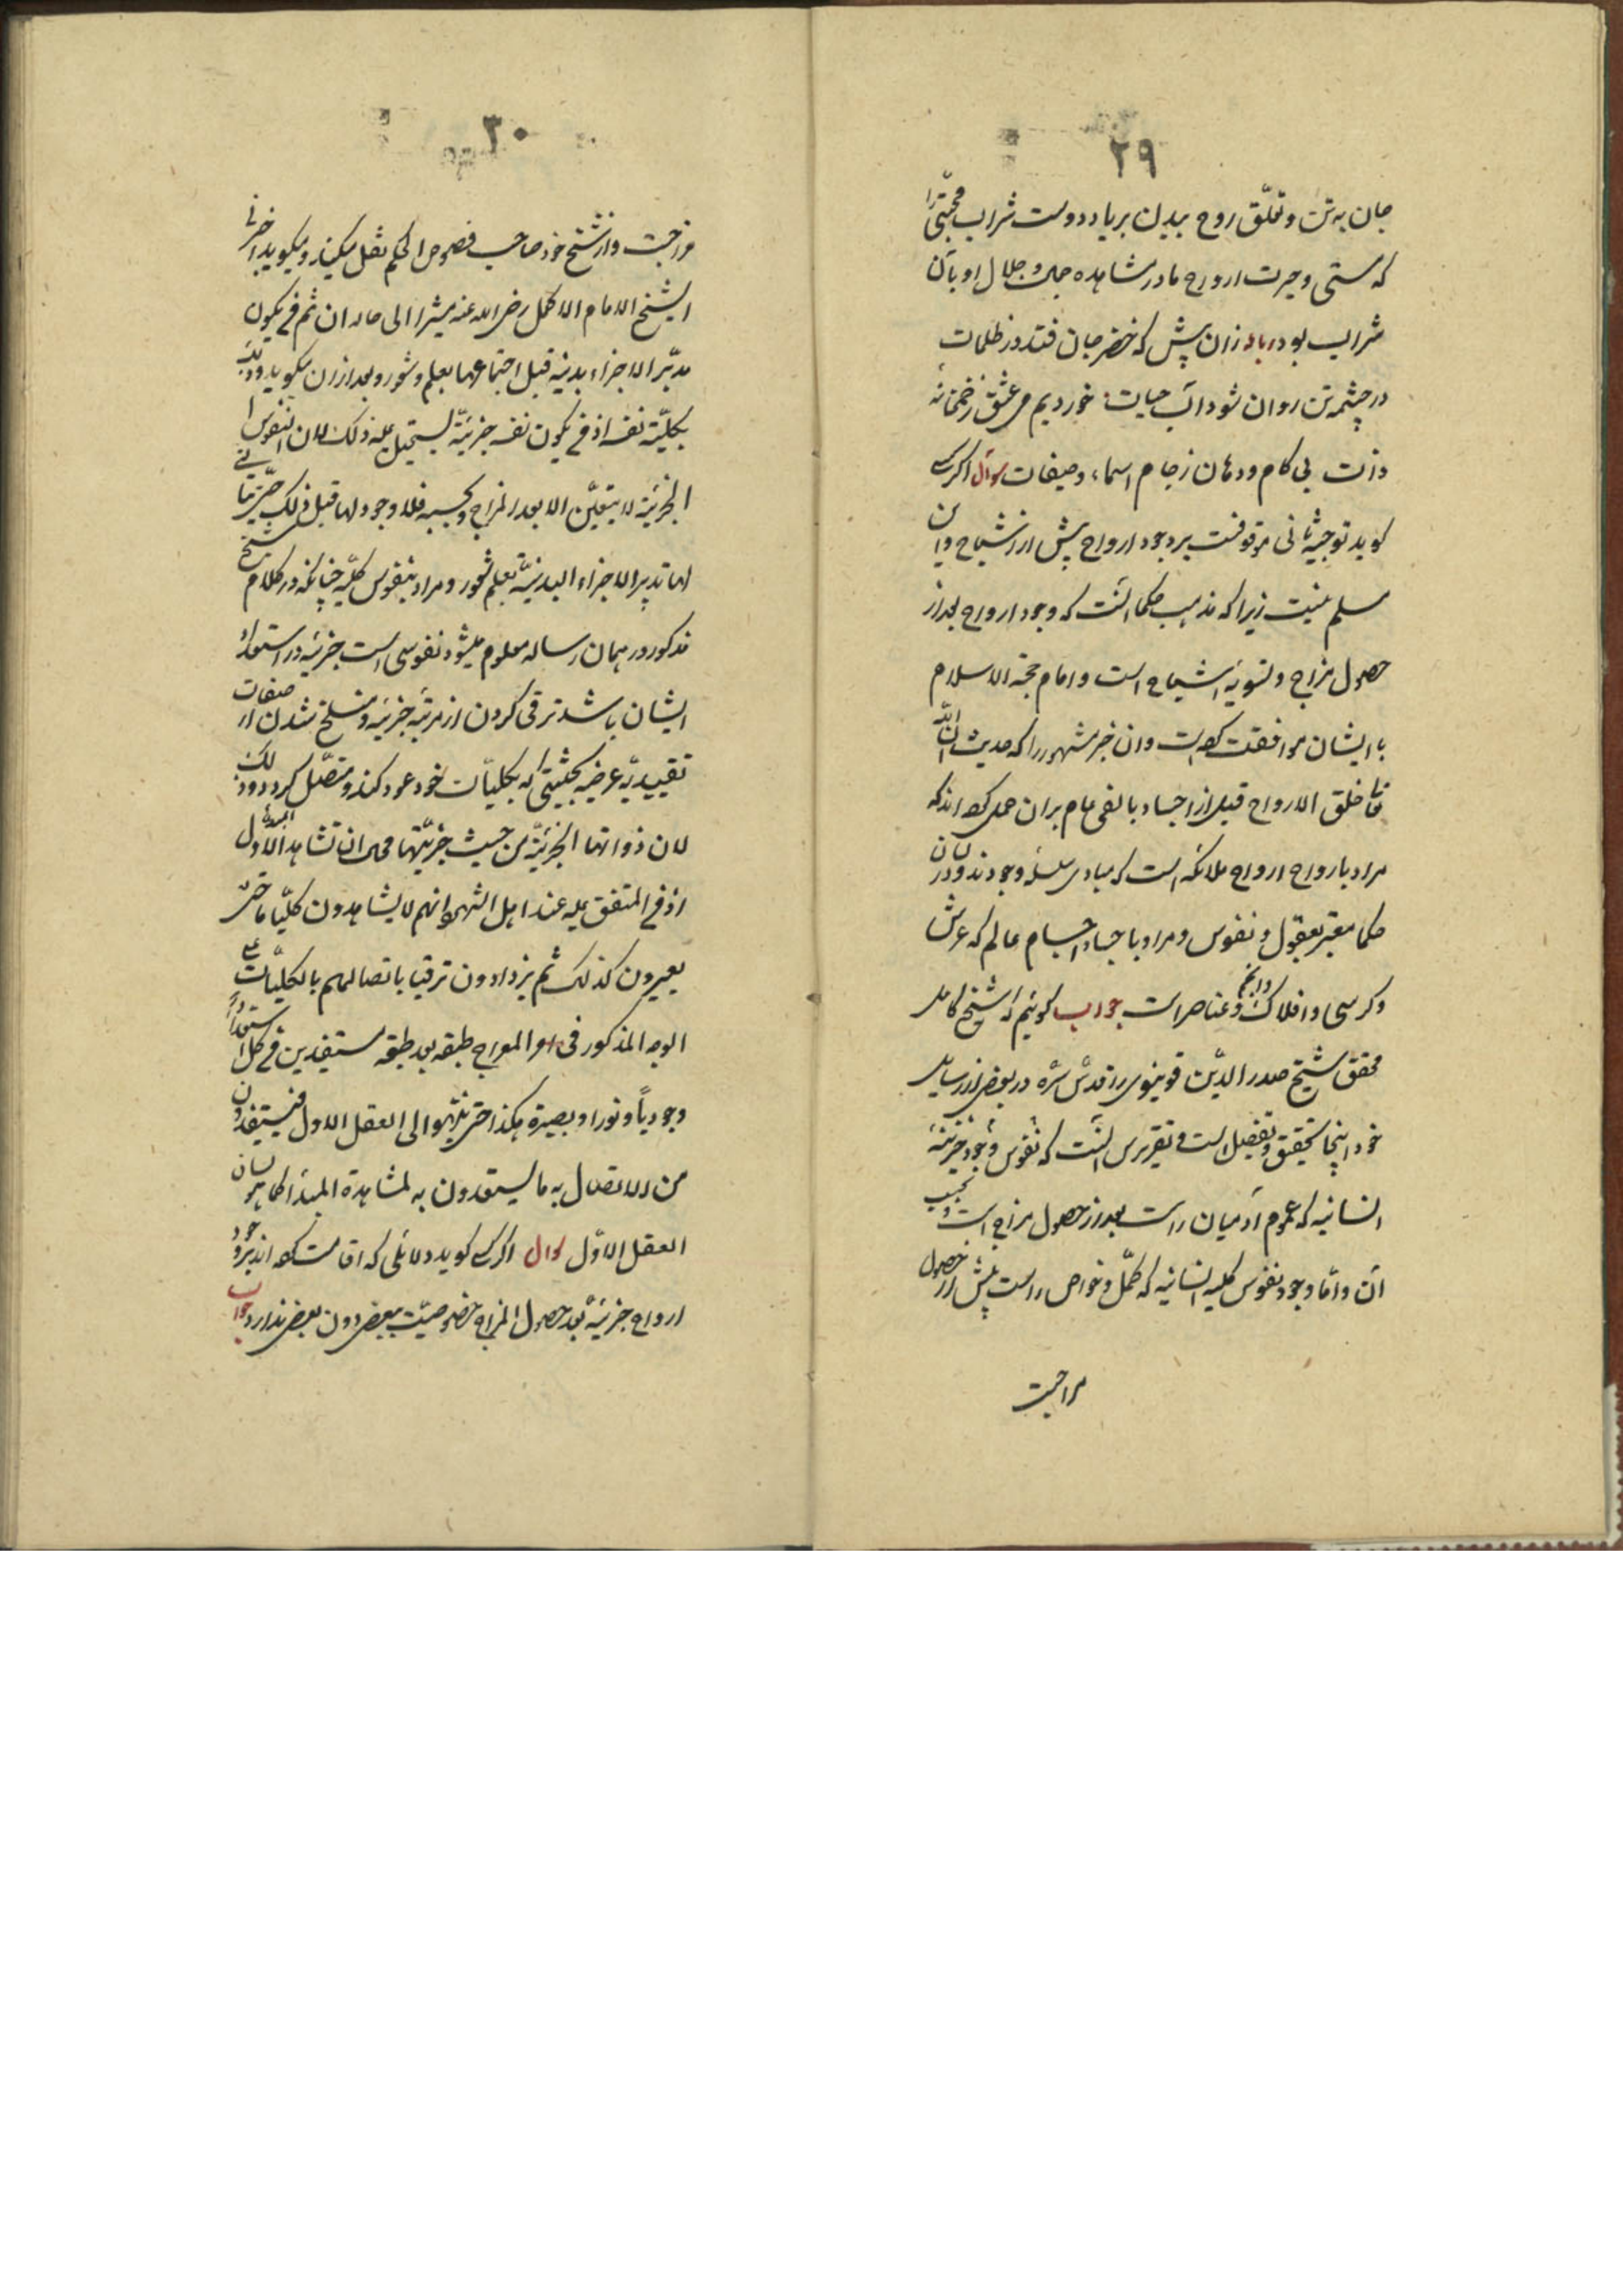 ۲۹
جان به تن و تعلّق روح ببدن بر یاد دوست شراب محبّتی را
که مستی و حیرت ارواح ما در مشاهده جمال و جلال او بآن
شراب بود رباعی زان پیش که خضر جان فتد در ظلمات
در چشمه تن روان شود آب حیات خوردیم می عشق ز خمخانه
ذات بی کام و دهان ز جام اسماء و صفات سوال اگر کسی
کوید توجیه ثانی موقوفست بر وجود ارواح پیش از اشباح و این
مسلم نیست زیرا که مذهب حکما آنست که وجود ارواح بعد از
حصول مزاج و تسویه اشباح است و امام حجة الاسلام
با ایشان موافقت کرده است و ان خبر مشهور را که حدیث ان الله
تعا خلق الارواح قبل از اجساد بالفی عام بران حمل کرده اند که
مراد بارواح ارواح ملائکه است که مبادی سلسله وجودند و در لسان
حکما معبّر بعقول و نفوس و مراد باجساد اجسام عالم که عرش
و کرسی و افلاک و انجم و عناصر است جواب کوئیم که شیخ کامل
محقق شیخ صدر الدّین قونیوی را قدّس سرّه در بعض از رسایل
خود اینجا تحقیق و تفصیل است و تقریرش آنست که وجود نفوس جزئیّه
انسانیه که عموم آدمیان راست بعد از حصول مزاج است و بحسب
آن و امّا وجود نفوس کلیه انسانیه که کمّل و خواص راست پیش از حصول
مزاجست
۳۰
مزاجست و از شیخ خود صاحب فصوص الحکم نقل میکند و میکوید اخبرنی
الشیخ الامام الاکمل رضی الله عنه مشیرا الی حاله ان ثم من یکون
مدبّر الاجزاء بدنیه قبل اجتماعها بعلم و شعور و بعد از ان میکوید و ذلک
بکلیّة نفسه اذ من یکون نفسه جزئیّة یستحیل علیه ذلک لان النفوس
الجزئیة لا یتعیّن الا بعد المزاج و بحسبه فلا وجود لها قبل ذلک حتی یتأتی
لها تدبیر الاجزاء البدنیّة بعلم و شعور و مراد بنفوس کلّیه چنانکه در کلام شیخ
مذکور در همان رساله معلوم میشود نفوسی است جزئیه در استعداد
ایشان باشد ترقی کردن از مرتبه جزئیه و منسلخ شدن از صفات
تقییدیّه عرضیه بحیثیتی که بکلیّات خود عود کند و متصّل کردد و ذلک
لان ذواتها الجزئیّة من حیث جزئیّتها محال ان تشاهد المبدأ الاول
اذ من المتفق علیه عند اهل الشهود انهم لا یشاهدون کلیّا ما حتی
یصیرون کذلک ثم یزدادون ترقیا باتصالهم بالکلیّات علی
الوجه المذکور فی امر المعراج طبقه بعد طبقه مستفیدین من کل استعداداً
وجودیاً و نورا و بصیرة هکذا حتی ینتهوا الی العقل الاول فیستفیدون
من الاتصال به ما یستعدون به لمشاهدة المبدأ کما هو لسان
العقل الاوّل سوال اکر کسی کوید دلائلی که اقامت کرده اند بر وجود
ارواح جزئیّه بعد حصول المزاج خصوصیّت ببعض دون بعض ندارد جواب